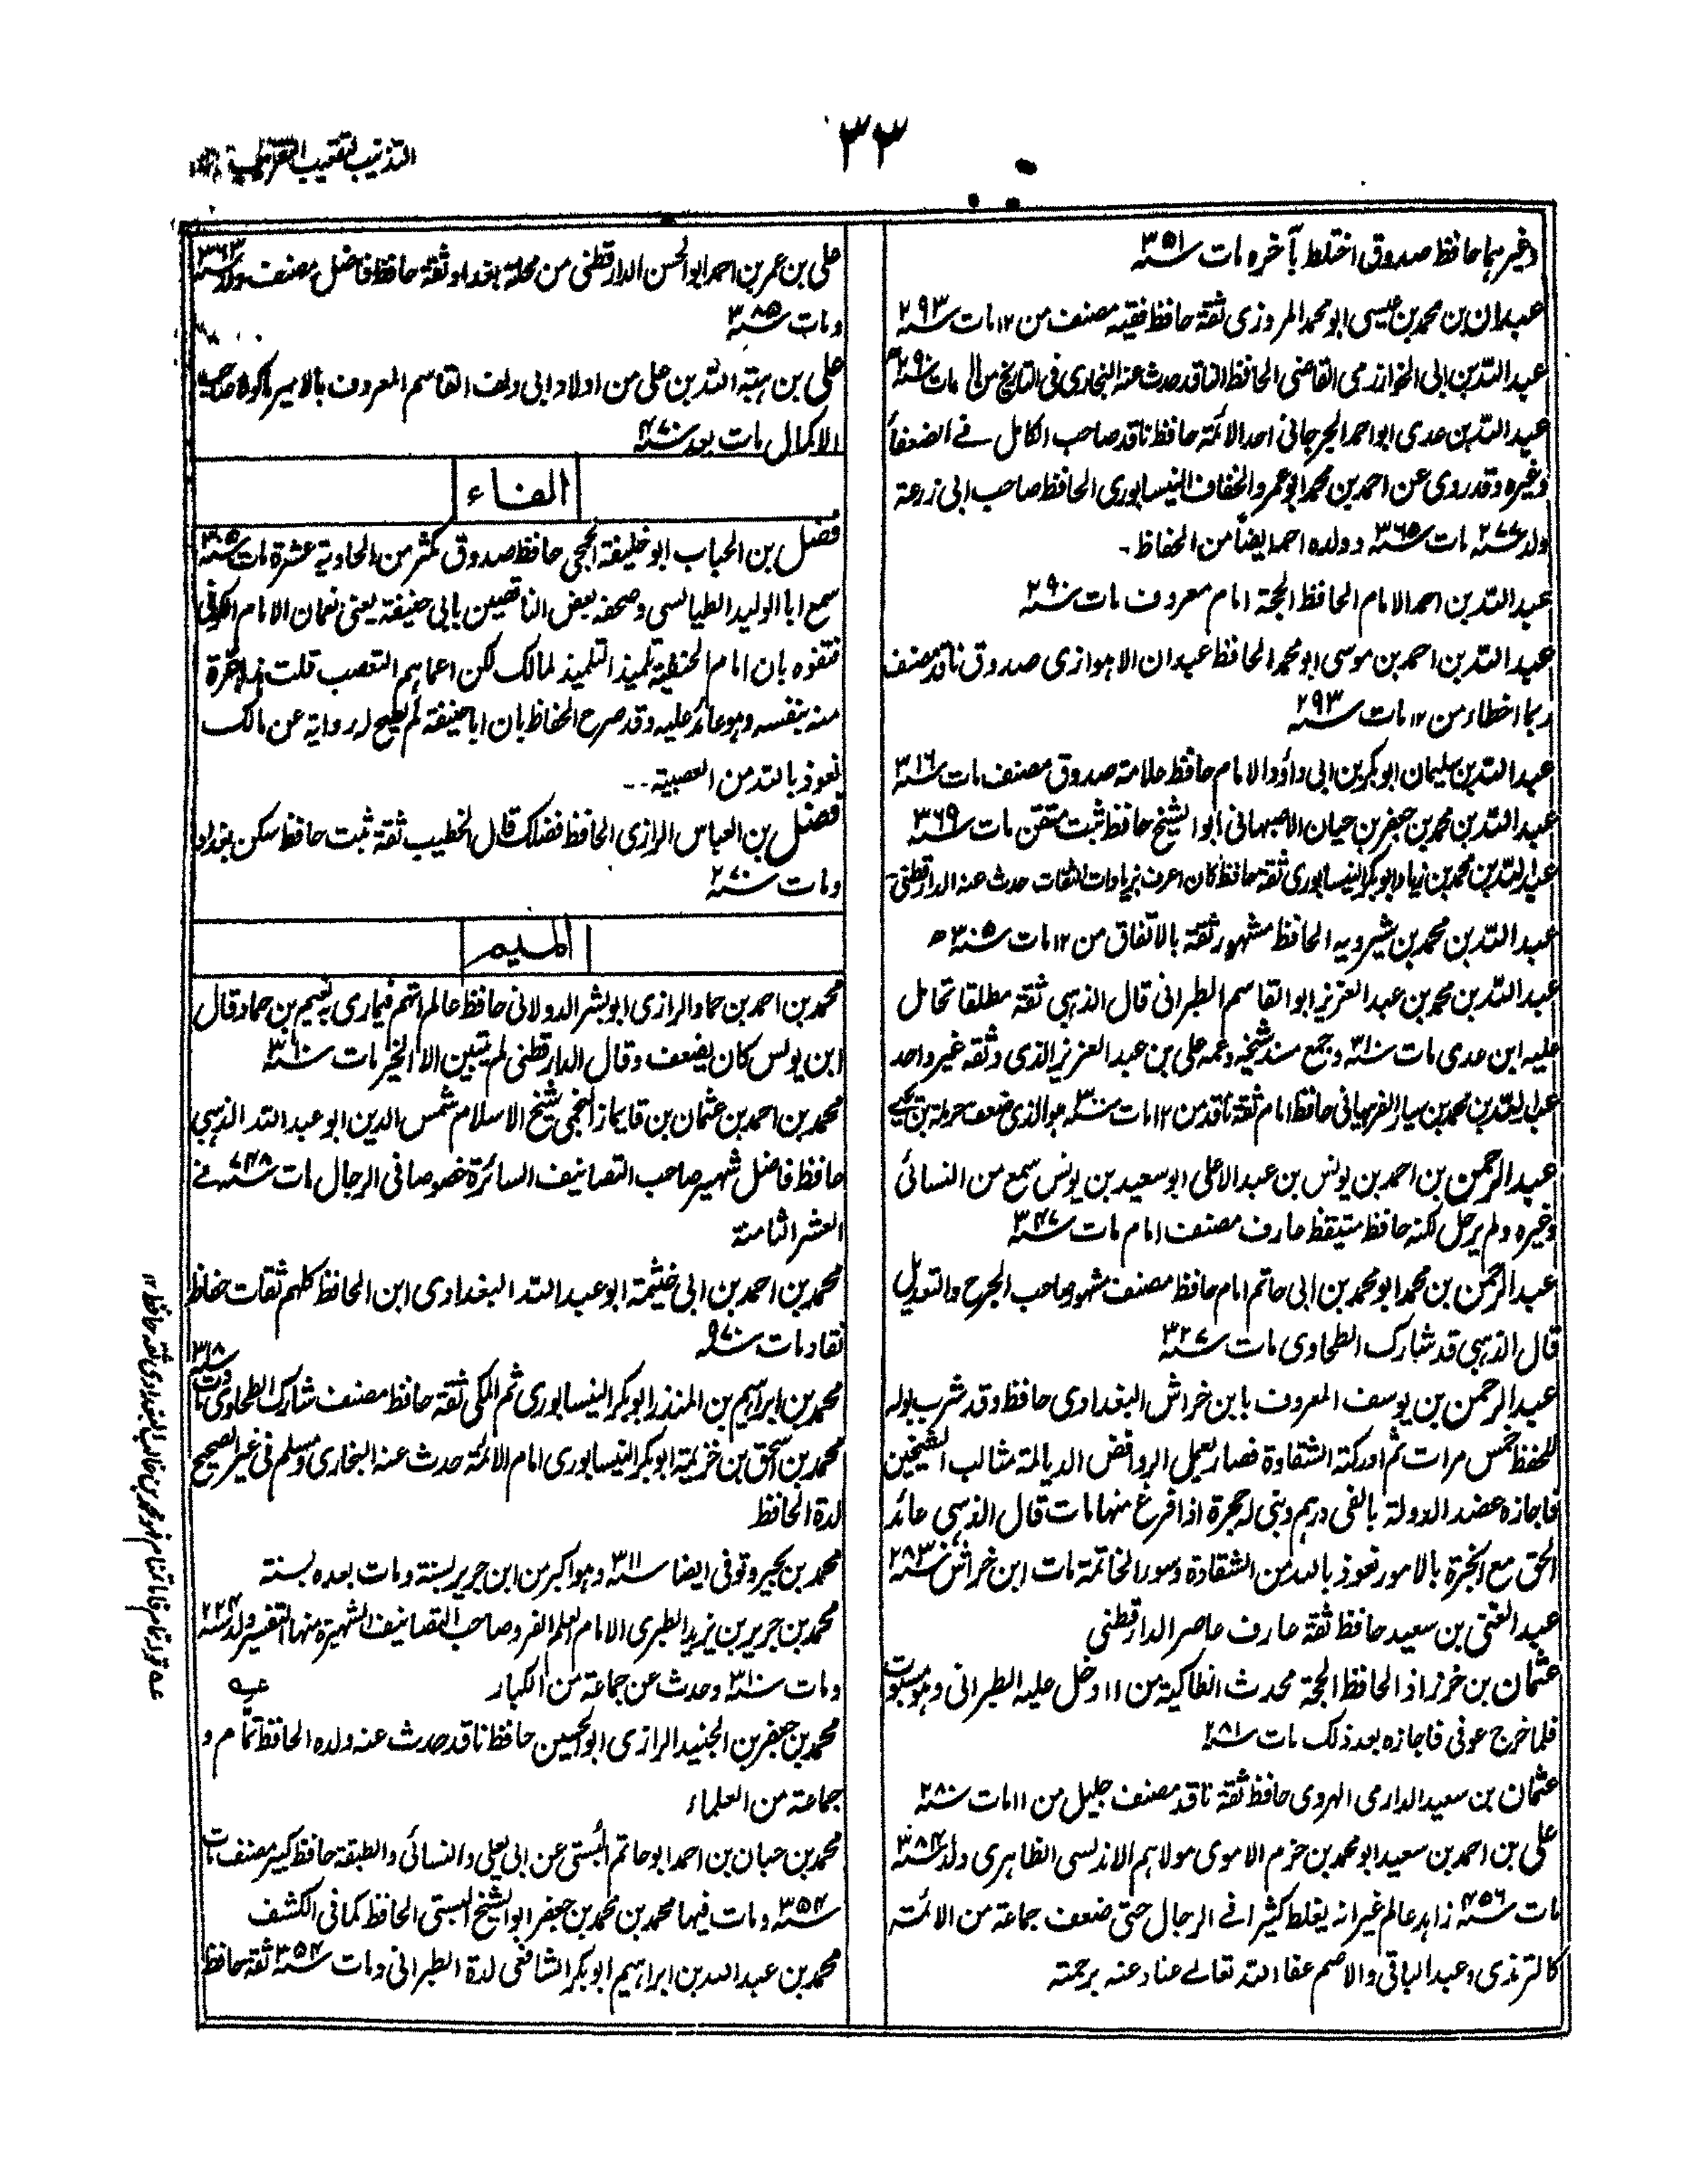 ٣٣
التذنيب لتعقيب التقريب
وغيرهما حافظ صدوق اختلط بآخره مات سنة ٣٥١
عبدان بن محمد بن عيسى ابو محمد المروزى ثقة حافظ فقيه مصنف من ١٢ مات سنة ٢٩٣
عبد الله بن ابى الخوارزمى القاضى الحافظ الناقد حدث عنه البخارى فى التاريخ من ال مات سنة
عبد الله بن عدى ابو احمد الجرجانى احد الائمة حافظ ناقد صاحب الكامل فے الضعفاء
وغيره وقد روى عن احمد بن محمد ابو عمرو الخفاف النيسابورى الحافظ صاحب ابى زرعة
ولد سنة ٢٧٧ مات سنة ٣٦٥ وولده احمد ايضا من الحفاظ -
عبد الله بن احمد الامام الحافظ الحجة امام معروف مات سنة ٢٩٠
عبد الله بن احمد بن موسى ابو محمد الحافظ عبدان الاهوازى صدوق ناقد مصنف
ربما اخطاء من ١٢ مات سنة ٢٩٣
عبد الله بن سليمان ابو بكر بن ابى داؤد الامام حافظ علامة صدوق مصنف مات سنة ٣١٦
عبد الله بن محمد بن جعفر بن حيان الاصبهانى ابو الشيخ حافظ ثبت متقن مات سنة ٣٦٩
عبد الله بن محمد بن زياد ابو بكر النيسابورى ثقة حافظ كان اعرف بزيادات الثقات حدث عنه الدارقطنى
عبد الله بن محمد بن شيرويه الحافظ مشهور ثقة بالاتفاق من ١٢ مات سنة ٣٠٥ ھ
عبد الله بن محمد بن عبد العزيز ابو القاسم الطبرانى قال الذهبى ثقة مطلقا تحامل
عليه ابن عدى مات سنة وجمع مسند شيخه وعمه على بن عبد العزيز الذى وثقه غير واحد
عبد الله بن محمد بن سيار الفرهيانى حافظ امام ثقة ناقد من ١٢ مات سنة ٣٠٠ هو الذى ضعف حرملة بن يحيے
عبد الرحمن بن احمد بن يونس بن عبد الاعلى ابو سعيد بن يونس سمع من النسائى
وغيره ولم يرحل لكنه حافظ متيقظ عارف مصنف امام مات سنة ٣٤٧
عبد الرحمن بن محمد ابو محمد بن ابى حاتم امام حافظ مصنف مشهور صاحب الجرح والتعديل
قال الذهبى قد شارك الطحاوى مات سنة ٣٢٧
عبد الرحمن بن يوسف المعروف بابن خراش البغدادى حافظ وقد شرب بوله
للحفظ خمس مرات ثم ادركته الشقاوة فصار يعمل الروافض الديالمة مثالب الشيخين
فاجازه عضد الدولة بالفى درهم وبنى له حجرة اذا فرغ منها مات قال الذهبى عائد
الحق مع الخبرة بالامور نعوذ بالله من الشقاوة وسوء الخاتمة مات ابن خراش سنة ٢٨٣
عبد الغنى بن سعيد حافظ ثقة عارف عاصر الدارقطنى
عثمان بن خرزاذ الحافظ الحجة محدث انطاكية من ١١ دخل عليه الطبرانى وهو مسبوت
فلما خرج عوفى فاجازه بعد ذلك مات سنة ٢٨١
عثمان بن سعيد الدارمى الهروى حافظ ثقة ناقد مصنف جليل من ١١ مات سنة ٢٨٠
على بن احمد بن سعيد ابو محمد بن حزم الاموى مولاهم الاندلسى الظاهرى ولد سنة ٣٨٤
مات سنة ٤٥٦ زاهد عالم غير انه يغلط كثيرا فے الرجال حتى ضعف جماعة من الائمة
كالترمذى وعبد الباقى والاصم عفا الله تعالے عنا وعنه برحمته
على بن عمر بن احمد ابو الحسن الدارقطنى من محلة بغداد ثقة حافظ فاضل مصنف ولد سنة ٣٦٣
ومات سنة ٣٨٥
على بن هبة الله بن على من اولاد ابى دلف القاسم المعروف بالامير ماكولا صاحب
الاكمال مات بعد سنة ٤٧٠
الفاء
فضل بن الحباب ابو خليفة الجمحى حافظ صدوق مكثر من الحادية عشرة مات سنة ٣٠٥
سمع ابا الوليد الطيالسى وصحفه بعض الناقصين بابى حنيفة يعنى نعمان الامام الكوفى
فتفوه بان امام الحنفية تلميذ التلميذ لمالك لكن اعماهم التعصب قلت هذا جرة
منه بنفسه وهو عائد عليه وقد صرح الحفاظ بان ابا حنيفة لم يصح له رواية عن مالك
نعوذ بالله من العصبية - -
فضل بن العباس الرازى الحافظ فضلك قال الخطيب ثقة ثبت حافظ سكن بغداد
ومات سنة ٢٧٠
الميم
محمد بن احمد بن حماد الرازى ابو بشر الدولانى حافظ عالم اتهم فيما رى به نعيم بن حماد وقال
ابن يونس كان يضعف وقال الدارقطنى لم يتبين الا الخير مات سنة ٣١٠
محمد بن احمد بن عثمان بن قايماز النجمى شيخ الاسلام شمس الدين ابو عبد الله الذهبى
حافظ فاضل شهير صاحب التصانيف السائرة خصوصا فى الرجال مات سنة ٧٤٨ فے
العشر الثامنة
محمد بن احمد بن ابى خيثمة ابو عبد الله البغدادى ابن الحافظ كلهم ثقات حفاظ
نقاد مات سنة ٩٧
محمد بن ابراهيم بن المنذر ابو بكر النيسابورى ثم المكى ثقة حافظ مصنف شارك الطحاوى ومات سنة ٣١٨
محمد بن اسحق بن خزيمة ابو بكر النيسابورى امام الائمة حدث عنه البخارى ومسلم فى غير الصحيح
لدة الحافظ
محمد بن بجير وتوفى ايضا سنة ٣١١ وهو اكبر من ابن جرير بسنة ومات بعده بسنة
محمد بن جرير بن يزيد الطبرى الامام العلم الفرد صاحب التصانيف الشهيرة منها التفسير ولد سنة ٢٢٤
ومات سنة ٣١٠ وحدث عن جماعة من الكبار
محمد بن جعفر بن الجنيد الرازى ابو الحسين حافظ ناقد حدث عنه ولده الحافظ تمام و
جماعة من العلماء
محمد بن حبان بن احمد ابو حاتم البستى عن ابى يعلى والنسائى والطبقة حافظ كبير مصنف مات
سنة ٣٥٤ ومات فيها محمد بن محمد بن جعفر ابو الشيخ البستى الحافظ كما فى الكشف
محمد بن عبد الله بن ابراهيم ابو بكر الشافعى لدة الطبرانى ومات سنة ٣٥٤ ثقة حافظ